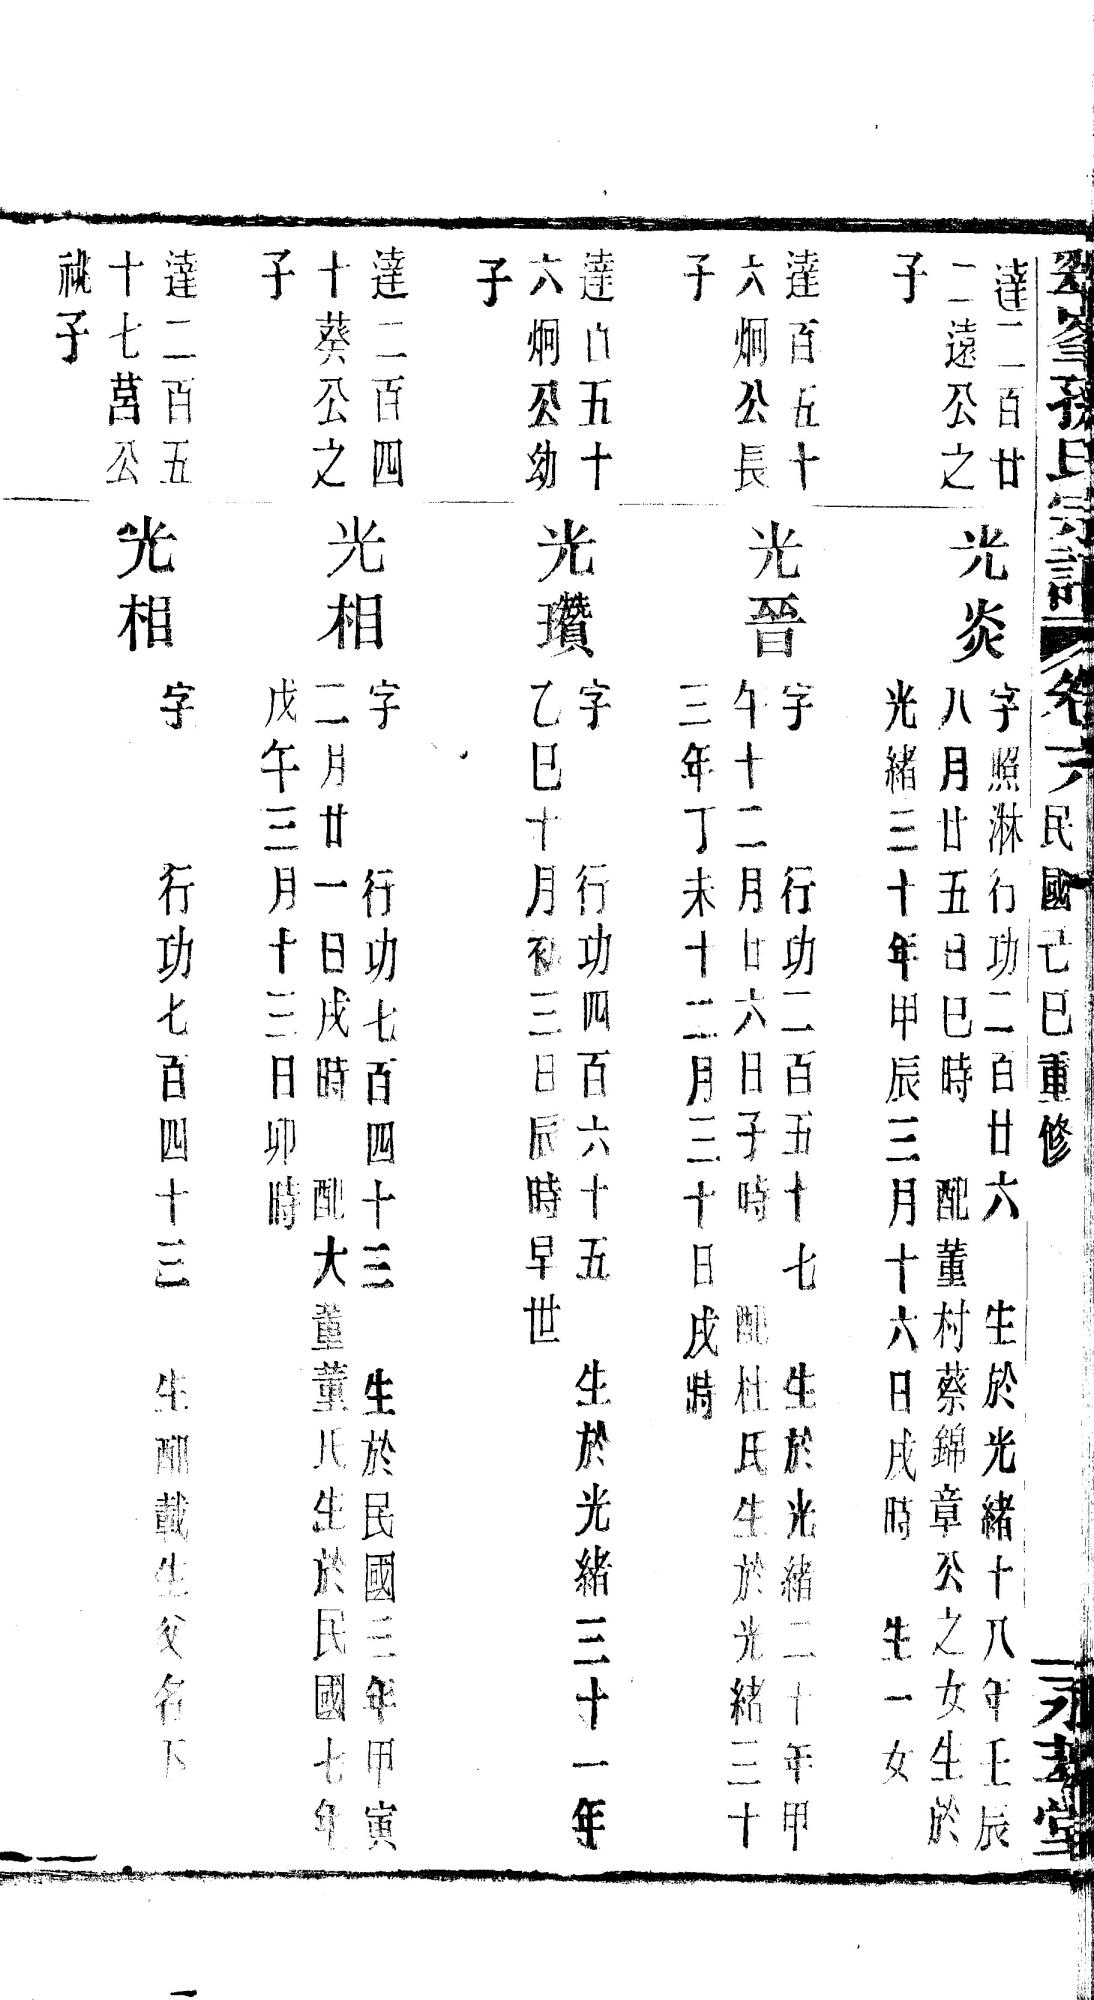 孫氏宗譜 卷六 民國己巳重修
達二百廿
二遠公之
子
光炎
字照淋行功二百廿六 生於光緒十八年壬辰
八月廿五日巳時 配董村蔡錦章公之女生於
光緒三十年甲辰三月十六日戌時 生一女
達百五十
六炯公長
子
光晉
字 行功二百五十七 生於光緒二十年甲
午十二月廿六日子時 配杜氏生於光緒三十
三年丁未十二月三十日戌時
達百五十
六炯公幼
子
光瓚
字 行功四百六十五 生於光緒三十一年
乙巳十月初三日辰時早世
達二百四
十葵公之
子
光相
字 行功七百四十三 生於民國三年甲寅
二月廿一日戌時 配大董董氏生於民國七年
戊午三月十三日卯時
達二百五
十七莒公
祧子
光相
字 行功七百四十三 生配載生父名下